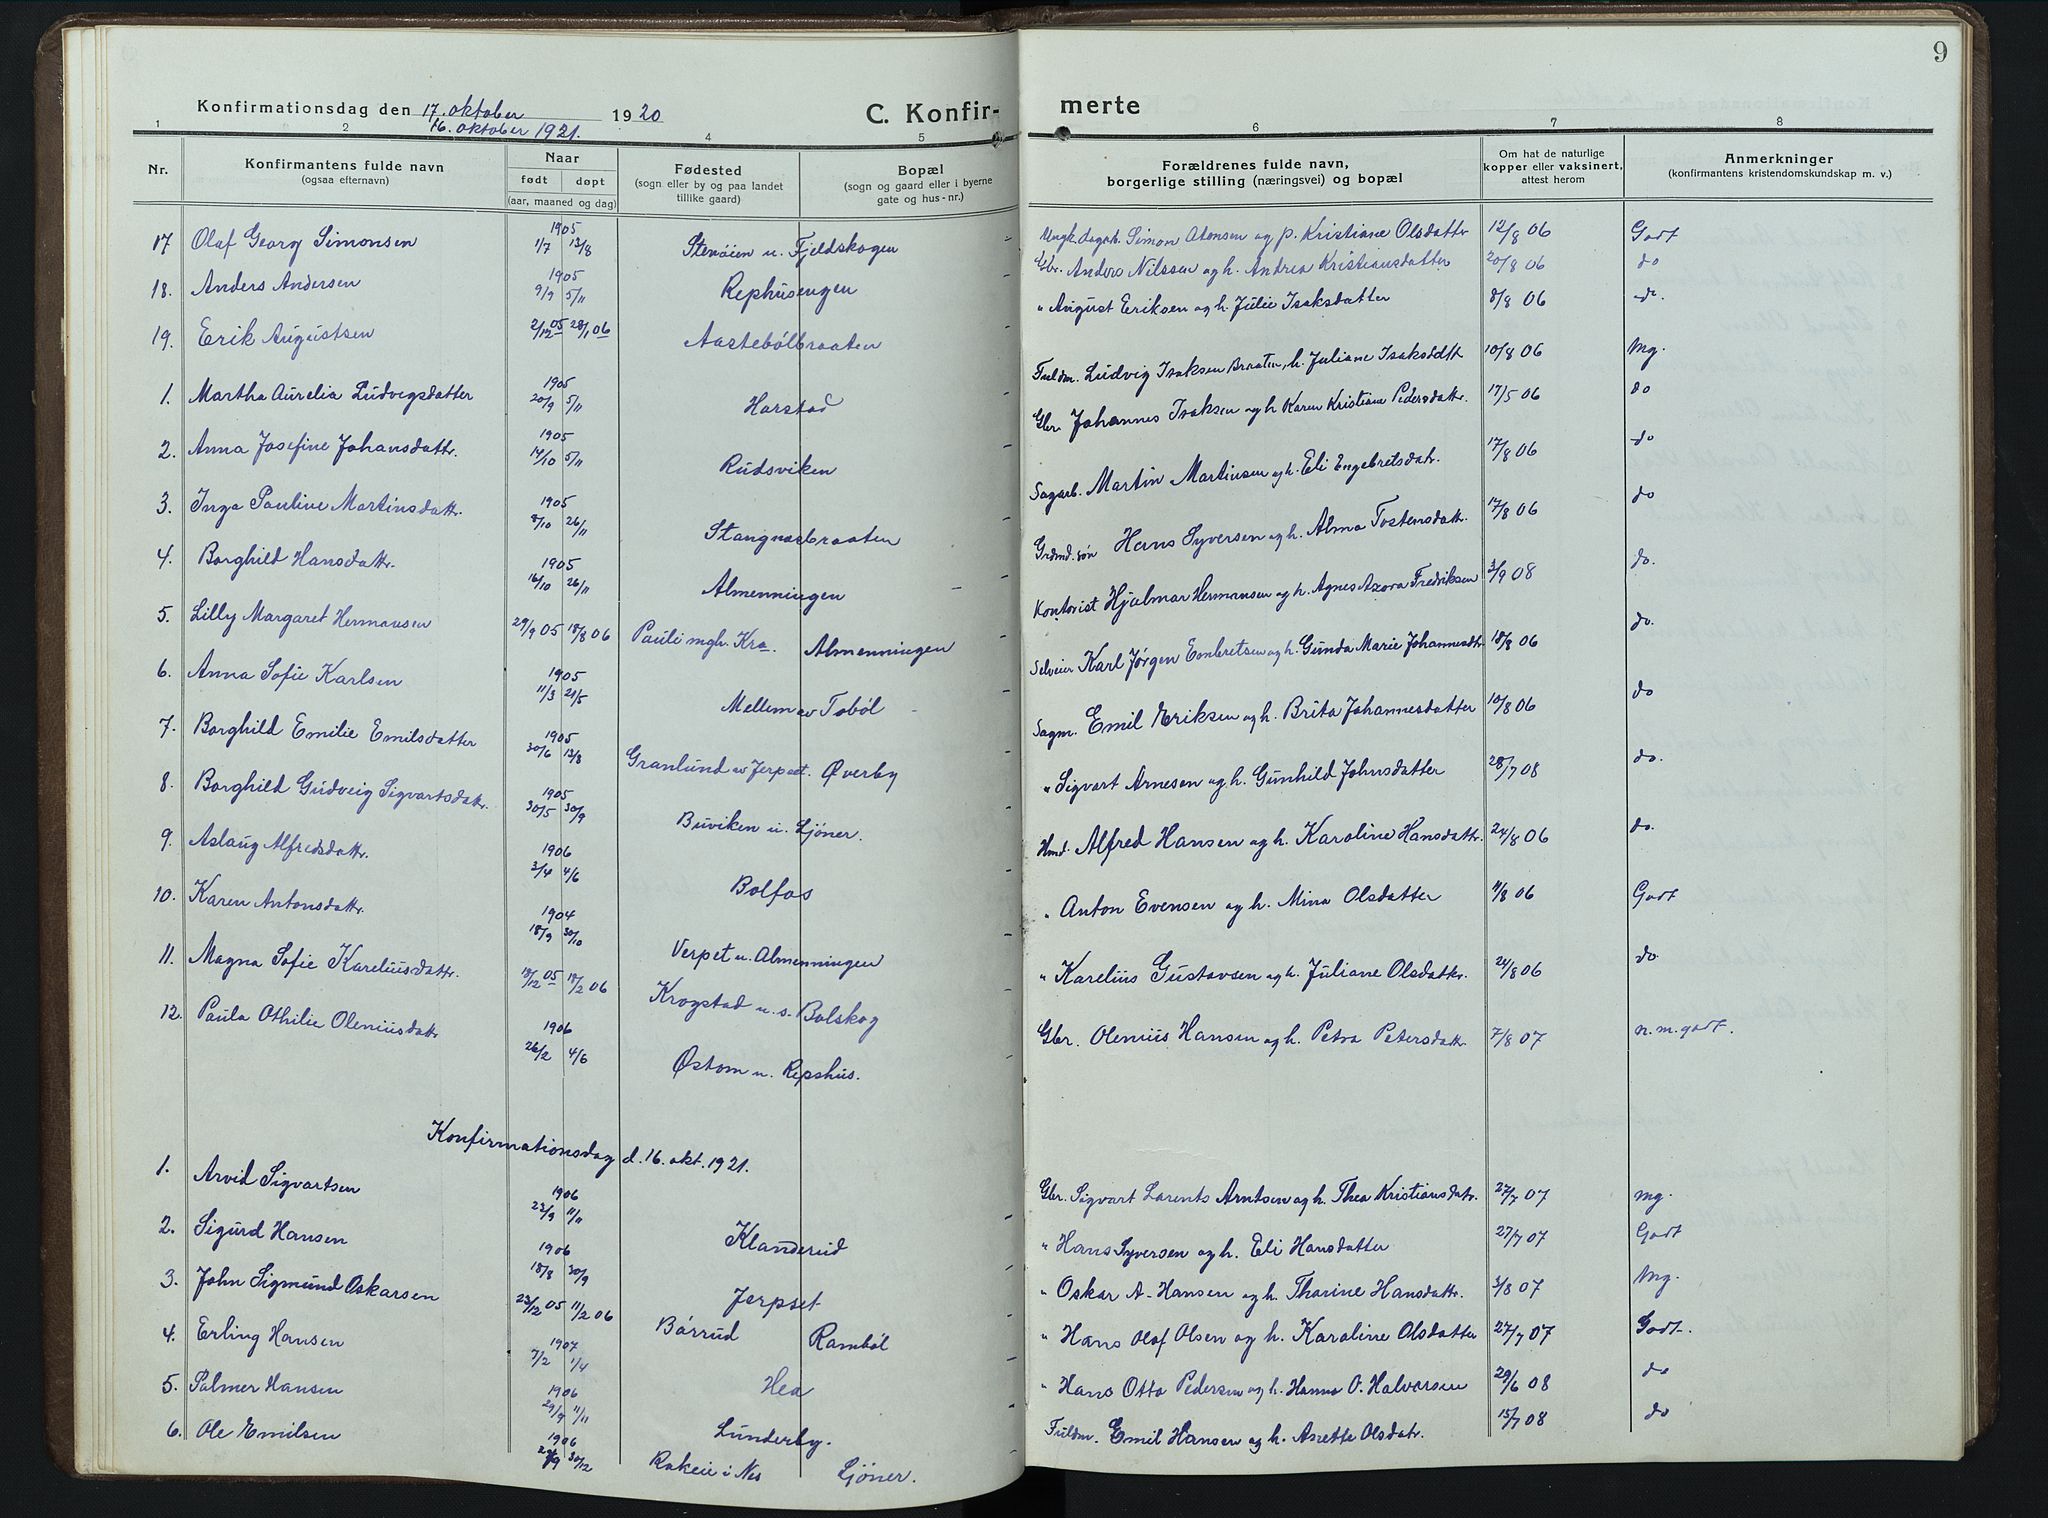 9
Konfirmationsdag den 17. oktober 1920
16. oktober 1921.
C. Konfir- merte
1 2 3 4 5 6 7 8
Nr. Konfirmantens fulde navn (ogsaa efternavn) Naar født døpt (aar, maaned og dag) Fødested (sogn eller by og paa landet tillike gaard) Bopæl (sogn og gaard eller i byerne gate og hus-nr.) Forældrenes fulde navn, borgerlige stilling (næringsvei) og bopæl Om hat de naturlige kopper eller vaksinert, attest herom Anmerkninger (konfirmantens kristendomskundskap m. v.)
17 Olaf Georg Simonsen 1905 1/7 13/8 Stenvien u. Fjeldskogen Ungk. dagarb. Simon Atensen og p. Kristiane Olsdatter 12/8 06 Godt
18. Anders Andersen 1905 9/9 5/11 Rephusengen Gbr. Anders Nilssen og h. Andrea Kristiansdatter 20/8 06 do
19. Erik Augustsen 2/12 05 28/1 06 Aastebölbraaten " August Eriksen og h. Julie Isaksdatter 8/8 06 do.
1. Martha Aurelia Ludvigsdatter 1905 20/9 5/11 Harstad Fuldm. Ludvig Isaksen Braaten, h. Juliane Isaksddtt 10/8 06 Mg.
2. Anna Josefine Johansdattr. 1905 14/10 5/11 Rudsviken Gbr. Johannes Isaksen og h Karen Kristiane Pedersdattr. 17/5 06 do
3. Inga Pauline Martinsdattr. 1905 8/10 26/11 Stangnesbraaten Sagarb. Martin Martinsen og h. Eli Engebretsdatr. 17/8 06 do
4. Borghild Hansdattr. 1905 16/10 26/11 Almenningen Grdmd. søn Hans Syversen og h. Alma Tostensdattr. 17/8 06 do
5. Lilly Margaret Hermansen 29/9 05 18/8 06 Pauli mgh. Kra. Almenningen Kontorist Hjalmar Hermansen og h. Agnes Azora Fredriksen 3/9 08 do.
6. Anna Sofie Karlsen 1905 11/3 21/5 Mellem av Toböl Selveier Karl Jörgen Embretsen og h. Gunda Marie Johannesdtr 18/8 06 do.
7. Borghild Emilie Emilsdatter 1905 30/6 13/8 Granlund av Jerpset. Øverby Sagm. Emil Eriksen og h. Brita Johannesdatter 10/8 06 do
8. Borghild Gudveig Sigvartsdattr. 1905 30/5 30/9 Buviken u. Ljöner. " Sigvart Arnesen og h. Gunhild Johnsdatter 28/7 08 do.
9. Aslaug Alfredsdattr. 1906 3/4 4/6 Bolfos Hmd. Alfred Hansen og h. Karoline Hansdattr. 24/8 06 do.
10. Karen Antonsdattr. 1904 18/9 30/10 Verpet u. Almenningen " Anton Evensen og h. Mina Olsdatter 11/8 06 Godt
11. Magna Sofie Kareliusdattr. 18/12 05 18/2 06 Krogstad u. s. Bolskog " Karelius Gustavsen og h. Juliane Olsdattr. 24/8 06 do.
12. Paula Othilie Oleniusdattr 1906 26/2 4/6 Østom u. Repshus. Gbr. Olenius Hansen og h. Petra Petersdattr. 7/8 07 n.m. godt.
Konfirmationsdag d. 16. okt. 1921.
1. Arvid Sigvartsen 1906 23/9 11/11 Klanderud Gbr. Sigvart Larents Arntsen og h. Thea Kristiansdatr. 27/7 07 mg.
2. Sigurd Hansen 1906 18/8 30/9 Jerpset " Hans Syversen og h. Eli Hansdatter 27/7 07 Godt
3. John Sigmund Oskarsen 23/12 05 11/2 06 Börrud Ramböl " Oskar A. Hansen og h. Thorine Hansdattr. 3/8 07 Mg.
4. Erling Hansen 1907 7/2 1/4 Hea " Hans Olaf Olsen og h. Karoline Olsdatter 27/7 07 Godt.
5. Palmer Hansen 1906 29/9 11/11 Lunderby. " Hans Otto Pedersen og h. Hanna O. Halvorsen 29/6 08 do
6. Ole Emilsen 1906 30/12 Rakeie i Nes Ljöner. Fuldm. Emil Hansen og h. Anette Olsdatr. 15/7 08 do